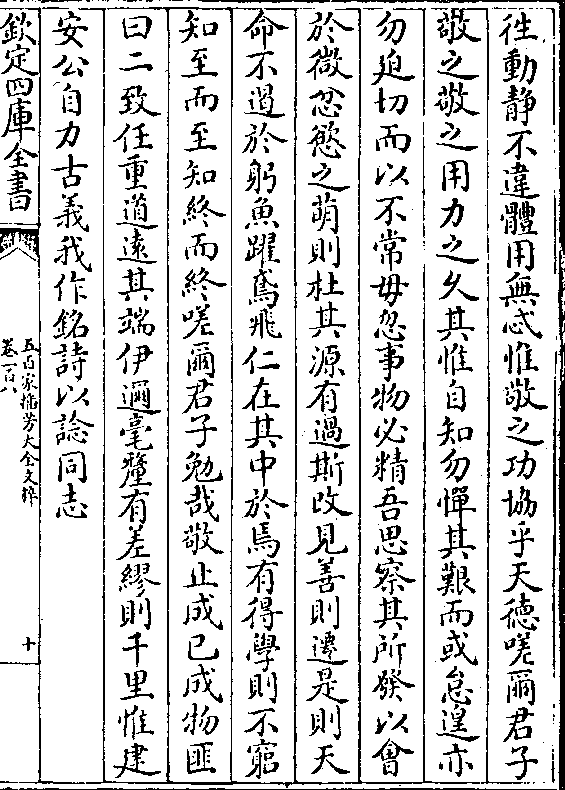 徃動静不違體用無忒惟敬之功協乎天徳嗟爾君子
敬之敬之用力之久其惟自知勿憚其艱而或怠遑亦
勿廹切而以不常毋忽事物必精吾思察其所發以㑹
於微忿慾之萌則杜其源有過斯改見善則遷是則天
命不遏於躬魚躍鳶飛仁在其中於焉有得學則不窮
知至而至知終而終嗟爾君子勉哉敬止成己成物匪
曰二致任重道遠其端伊邇毫釐有差繆則千里惟建
安公自力古義我作銘詩以諗同志
欽定四庫全書
五百家播芳大全文粹
卷一百八
十